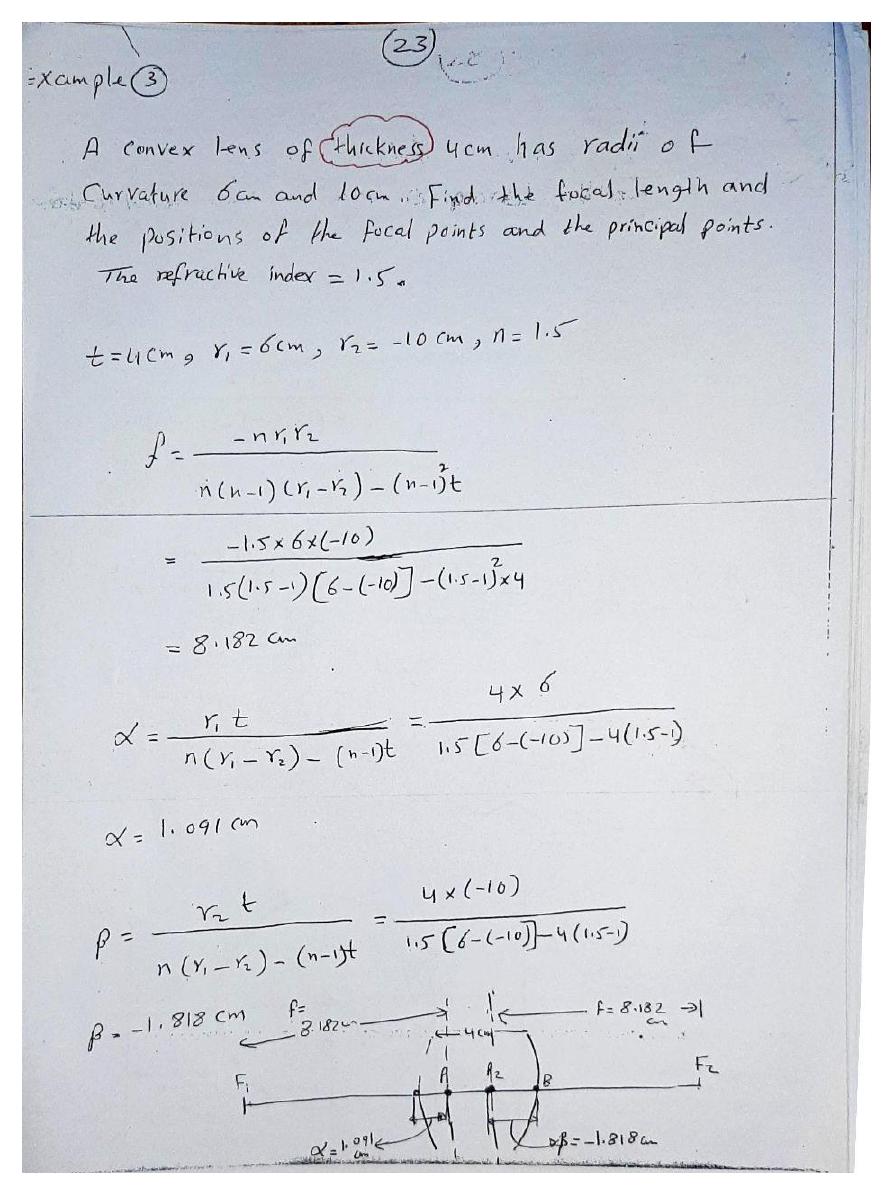 23
=xample 3
A Convex lens of thickness 4cm has radii of
Curvature 6cm and 10cm. Find the focal length and
the positions of the focal points and the principal points.
The refractive index = 1.5.
t=4cm, r₁=6cm, r₂= -10 cm, n= 1.5
f = -n r₁ r₂ / n(n-1)(r₁-r₂) - (n-1)²t
= -1.5×6×(-10) / 1.5(1.5-1)[6-(-10)] - (1.5-1)²×4
= 8.182 cm
α = r₁ t / n(r₁-r₂) - (n-1)t = 4×6 / 1.5[6-(-10)] - 4(1.5-1)
α = 1.091 cm
β = r₂ t / n(r₁-r₂) - (n-1)t = 4×(-10) / 1.5[6-(-10)] - 4(1.5-1)
β = -1.818 cm
f= 8.182cm
f= 8.182 cm
4cm
F₁ A A₂ B F₂
α=1.091 cm
β=-1.818cm